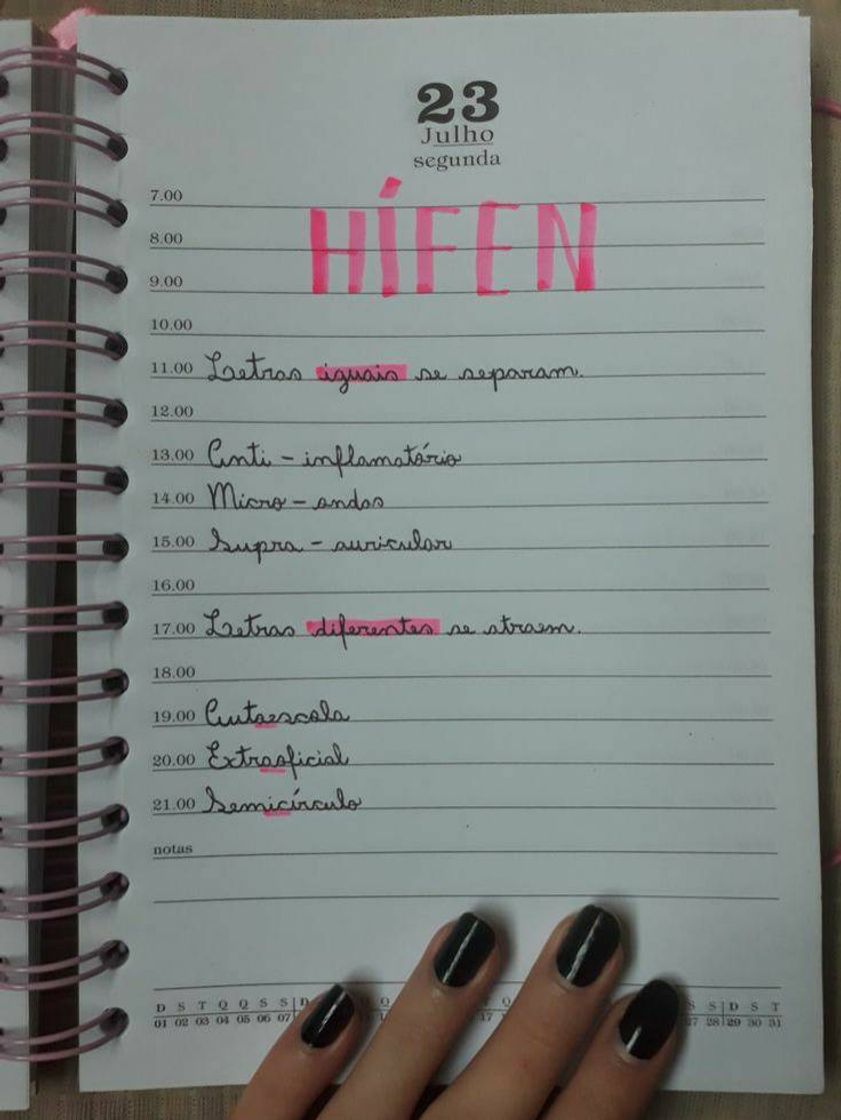 23
Julho
segunda
7.00
8.00
9.00
HÍFEN
10.00
11.00 Letras iguais se separam.
12.00
13.00 Anti - inflamatório
14.00 Micro - ondas
15.00 Supra - auricular
16.00
17.00 Letras diferentes se atraem.
18.00
19.00 Autoescola
20.00 Extraoficial
21.00 Semicírculo
notas
D S T Q Q S S D Q Q S S D S T
01 02 03 04 05 06 07 17 27 28 29 30 31